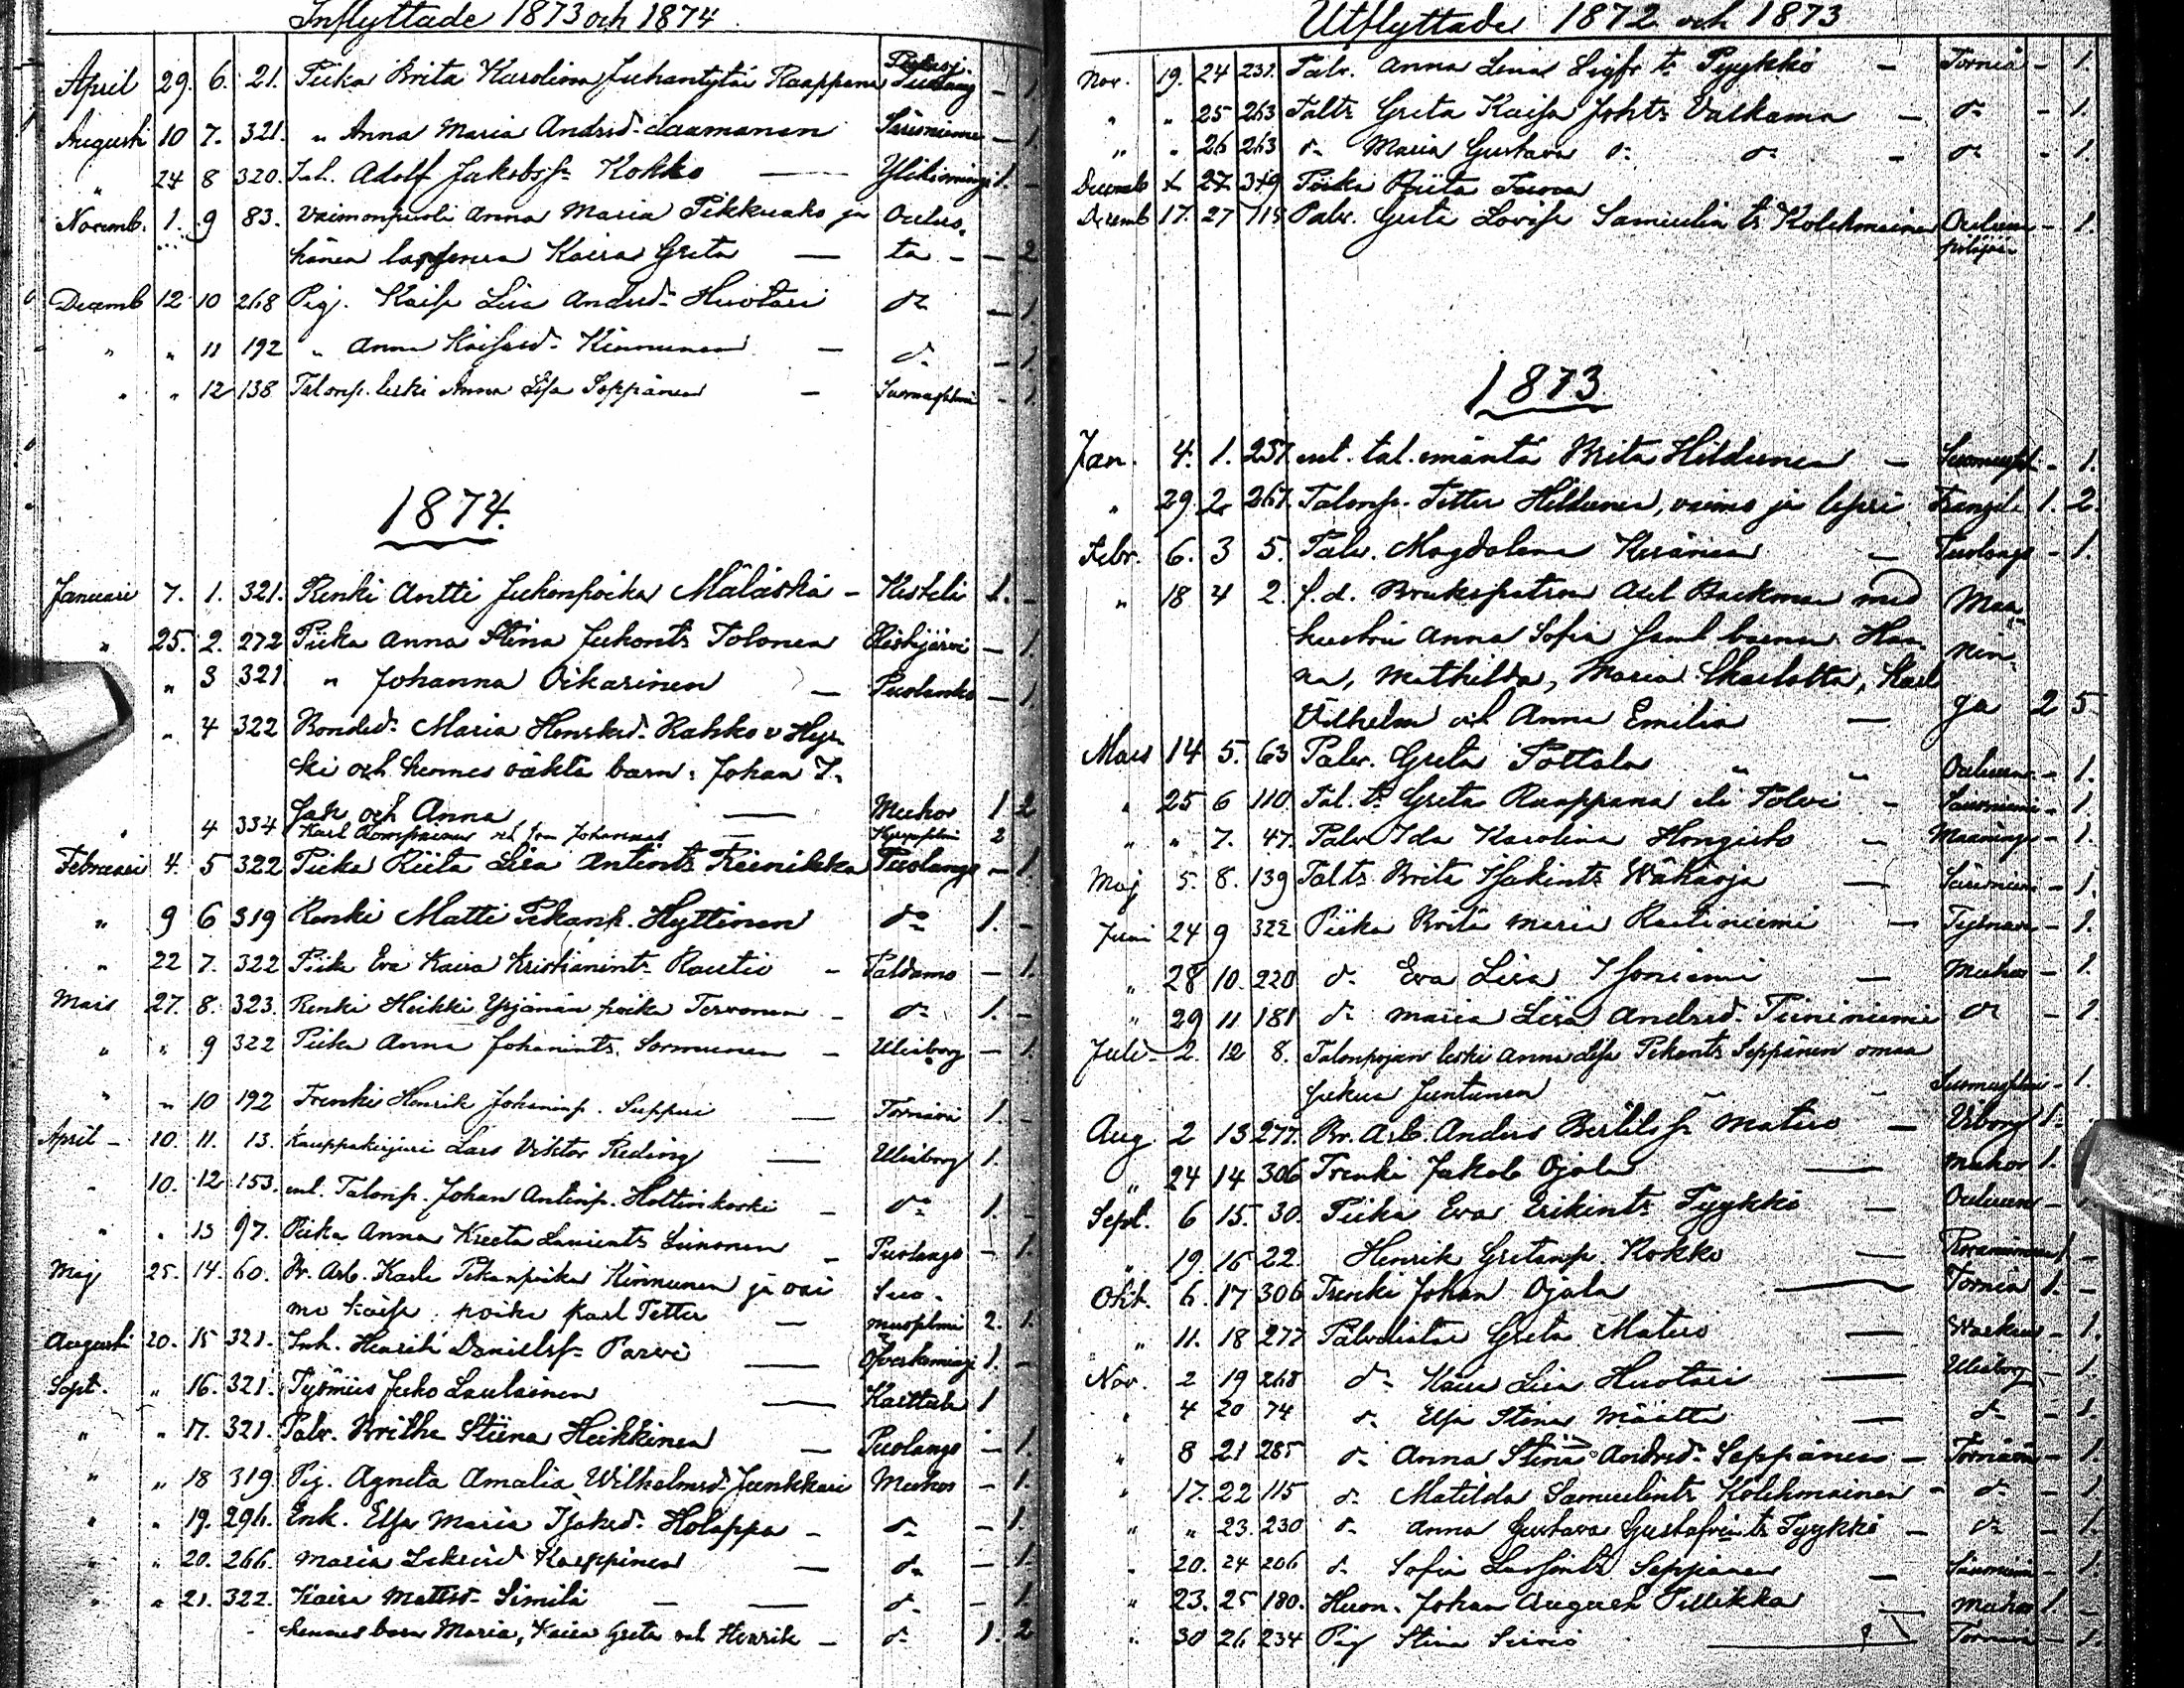 Inflyttade 1873 och 1874
April 29. 6. 21. Piika Brita Karolina Juhantytär Raappana - 1.
Augusti 10 7. 321. " Anna Maria Andrsd. Laamanen Säräisniemi - 1.
" 24 8 320. Inh. Adolf Jakobsson Kokko — Ylikiiminge 1. -
Novemb. 1. 9 83. Vaimonpuoli Anna Maria Pikkuaho ja Oulus-
hänen lapsensa Kaisa Greta — ta - - 2
Decemb 12 10 268 Pig. Kaisa Lisa Andrsd. Huotari do - 1.
" " 11 192 " Anna Kaisasd. Kinnunen — do - 1.
" " 12 138 Talonp. leski Anna Lisa Seppänen - Suomusslmi - 1.
1874.
Januari 7. 1. 321. Renki Antti Juhonpoika Mäläskä - Kestilä 1. -
" 25. 2. 272 Piika Anna Stina Juhonts Tolonen - 1.
" 3 321 " Johanna Oikarinen — Puolanko - 1
" 4 322 Bondsd. Maria Henrksd. Kahko v Hyr-
ski och hennes oäkta barn: Johan I-
sak och Anna — Muhos 1 2
4 334 Karl Komulainen och son Johannes — 2
Februari 4. 5 322 Piika Riita Lisa Antints Reinikka Puolango - 1.
" 9 6 319 Renki Matti Pekanp. Hyttinen do 1. -
" 22 7. 322 Piika Eva Kaisa Kristianints Rautio - Paldamo - 1.
Mars 27. 8. 323. Renki Heikki Yrjänän poika Tervonen - do 1. -
" " 9 322 Piika Anna Johanints. Sormunen - Uleåborg - 1.
" " 10 192 Trenki Henrik Johaninp. — 1. -
April - 10. 11. 13. Kauppakirjuri Lars Viktor Reding — Uleåborg 1.
" 10. 12 153. ent. Talonp. Johan Antinp. Hottinkoski - do 1. -
" " 13 97. Piika Anna Kreeta Laurints Leinonen - Puolango - 1.
Maj 25. 14. 60. Br. Arb. Karle Pekanpoika Kinnunen ja vai Suo-
mo Kaisa poika Karl Petter — musslmi 2. 1.
Augusti 20. 15 321. Inh. Henrik Danielss. — 1. -
Sept. " 16. 321. Työmies Juho Laulainen — 1
" " 17. 321. Palv. Britha Stiina Heikkinen — Puolango - 1.
" " 18 319. Pig. Agneta Amalia Wilhelmsd. Junkkari Muhos - 1.
" " 19. 296. Enk. Elsa Maria Isaksd. Holappa - do - 1.
" " 20. 266. Maria Karppinen — do - 1.
" " 21. 322. Kaisa Mattsd. Similä — do - 1.
hennes barn Maria, Kaisa Greta och Henrik - do 1. 2
Utflyttade 1872 och 1873
Nov. 19. 24 231. Palv. Anna Lena Sigfr. ts Pyykkö - Torniå - 1.
" " 25 263 Talts Greta Kaisa Johts Valkama - do - 1.
" " 26 263 do Maria Gustava do do - do - 1.
Decemb 27 319 Piika Riita
Decemb 17. 27 115 Palv. Greta Lovisa Samuelin ts. Kolehmainen Oulun - 1.
1873
Jan. 4. 1. 257 ent. tal. emäntä Brita Hildunen - Suomussl. - 1.
" 29. 2. 267. Talonp. Petter Hildunen, vaimo ja lapsi Frantsila 1. 2.
Febr. 6. 3 5. Palv. Magdalena Keränen - Puolango - 1.
" 18 4 2. f.d. Brukspatron Axel Backman med Maa-
hustru Anna Sofia samt barnen Han- nin-
na, Mathilda, Maria Charlotta, Karl
Vilhelm och Anna Emilia — ga 2 5
Mars 14 5. 63 Palv. Greta Pottala Oulun - 1.
" 25 6 110. Tal. ts Greta Raappana eli Tolvi - Säräisniemi - 1.
" " 7. 47. Palv Ida Karolina Hongisto - Maaninga - 1.
Maj 5. 8. 139 Talts Brita Isakints Wähäoja — Säräisniemi - 1.
Juni 24 9 322 Piika Brita Maria Rautiniemi - Tyrnävä - 1.
" 28 10. 220 do Eva Lisa Isoniemi — Muhos - 1.
" 29 11 181 do Maria Lisa Andrsd. Tiininiemi do - 1
Juli - 2. 12 8. Talonpojan leski Anna Lisa Pekants Seppänen omaa
sukua Juntunen Suomusslmi - 1.
Aug 2 13 277. Br. Arb. Anders Bertilss. Matero — Viborg 1.
" 24 14 306 Trenki Jakob Ojala — Muhos 1.
Sept. 6 15. 30. Piika Eva Erikints Pyykkö — Oulun - 1
" 19. 16 22. Henrik Gretanp. Kokko — Rovaniemi 1. -
Okt. 6. 17 306 Trenki Johan Ojala — Torniå 1. -
" 11. 18 277 Palvelustar Greta Matero — - 1.
Nov. 2 19 268 do Kaisa Lisa Huotari — Uleåborg - 1.
" 4 20 74 do Elsa Stina Määttä — do - 1.
" 8 21 285 do Anna Stina Andrsd. Seppänen - Torniå - 1.
" 17. 22 115 do Matilda Samuelints Kolehmainen - do - 1.
" " 23. 230 do Anna Gustava Gustafvints Pyykkö - do - 1.
" 20. 24 206 do Sofia Seppänen — Säräisniemi - 1.
" 23. 25 180. Huon. Johan August Pillikka — Muhos 1. -
" 30 26 234 Pig Stina — - 1.